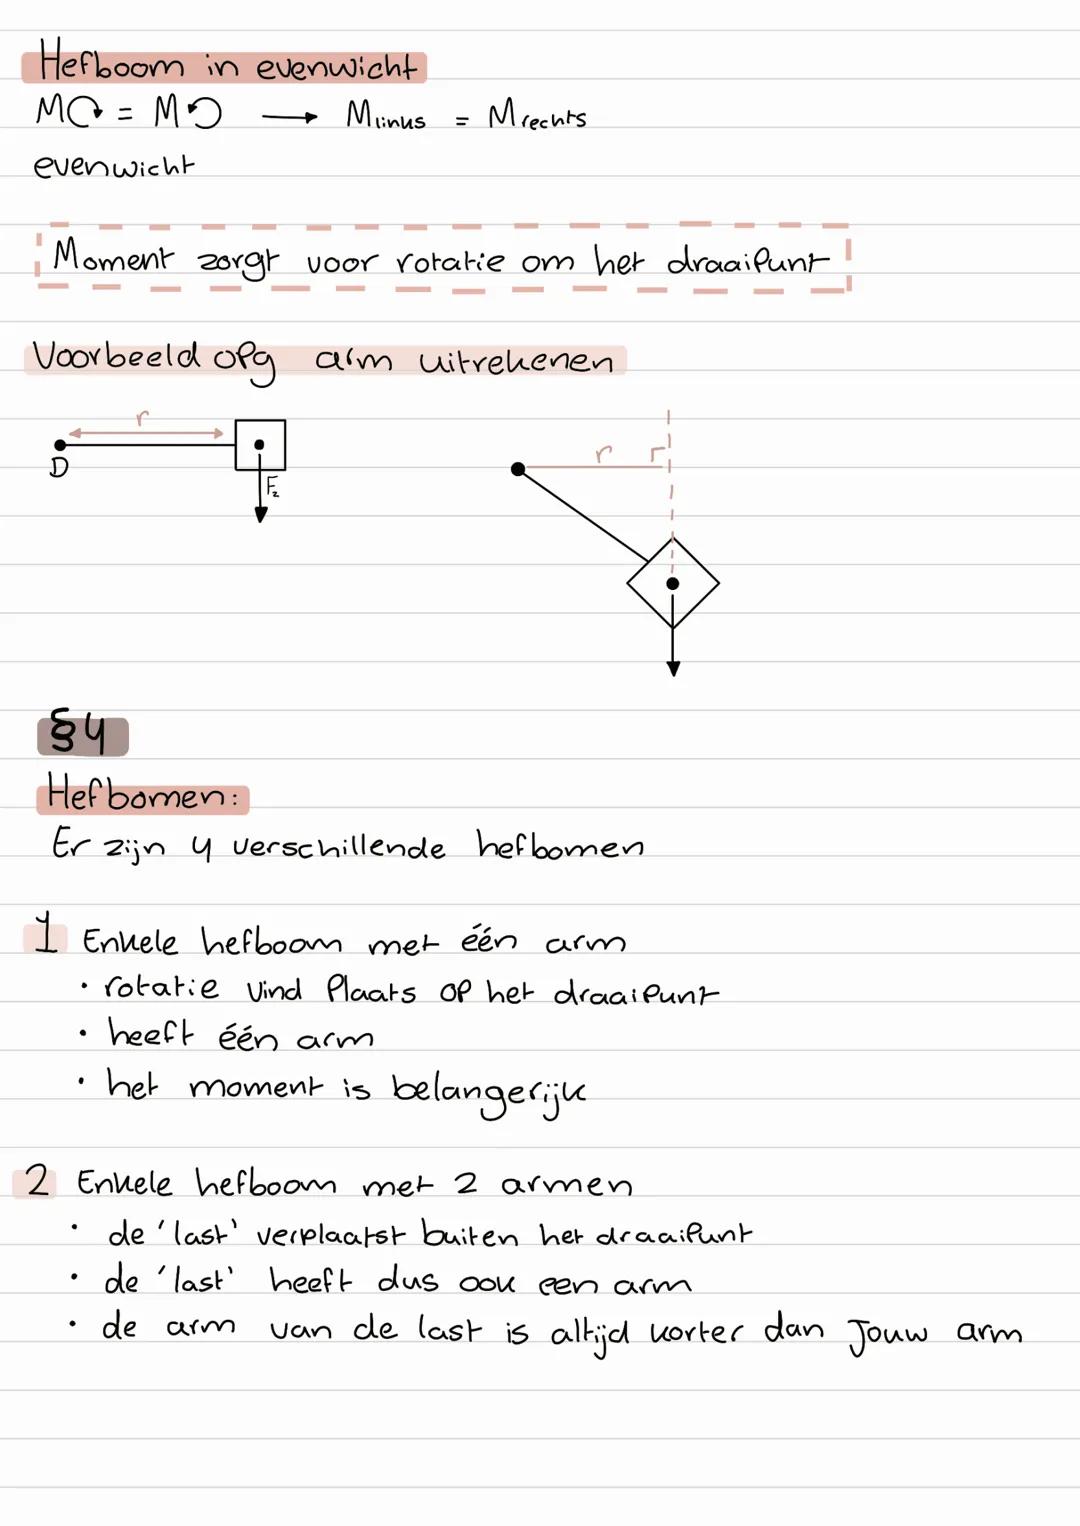 Hefboom in evenwicht
M↻ = M↺ → Mlinus = Mrechts
evenwicht
Moment zorgt voor rotatie om het draaipunt
Voorbeeld opg arm uitrekenen
r
D
Fz
r
§4
Hefbomen:
Er zijn 4 verschillende hefbomen
1 Enkele hefboom met één arm
• rotatie vind Plaats op het draaipunt
• heeft één arm
• het moment is belangerijk
2 Enkele hefboom met 2 armen
• de 'last' verplaatst buiten het draaipunt
• de 'last' heeft dus ook een arm
• de arm van de last is altijd korter dan Jouw arm